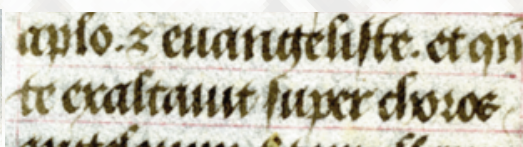 aplo. ⁊ euangeliste. et qui
te exaltauit super choros